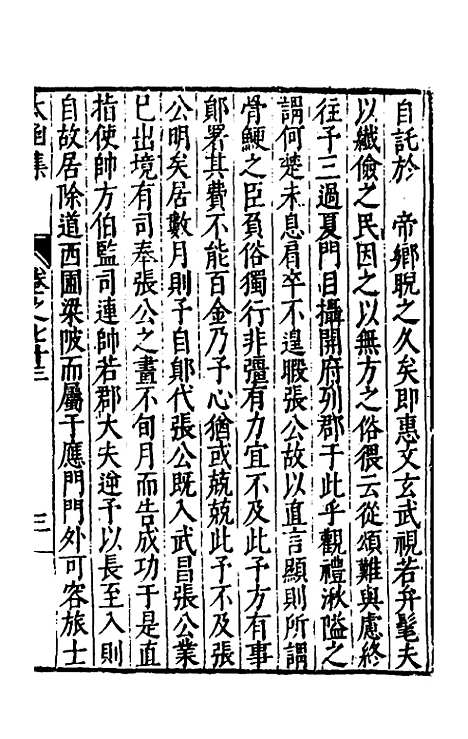 自託於　帝鄉睨之久矣即惠文玄武視若弁髦夫
以纖儉之民因之以無方之俗猥云從頌難與慮終
往予三過夏門目攝開府列郡于此乎觀禮湫隘之
謂何楚未息肩卒不遑暇張公故以直言顯則所謂
骨鯁之臣負俗獨行非彊有力宜不及此予方有事
鄖署其費不能百金乃予心猶或兢兢此予不及張
公明矣居數月則予自鄖代張公既入武昌張公業
已出境有司奉張公之畫不旬月而告成功于是直
指使帥方伯監司連帥若郡大夫逆予以長至入則
自故居除道西圃梁陂而屬于應門門外可容旅士
太函集
卷之七十三
三